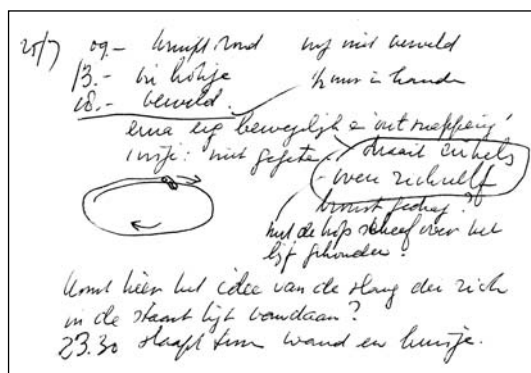 25/7 09.- kruipt rond nog niet verveld
13.- in holije ½ uur in handen
18.- verveld.
erna erg bewegelijk en 'ontsnapping'
1 muisje: niet gegeten draait cirkels
over zichzelf
bronst gedrag?
met de kop scheef over het
lijf gehouden.
Komt hier het idee van de slang die zich
in de staart bijt vandaan?
23.30 slaapt tussen wand en huisje.